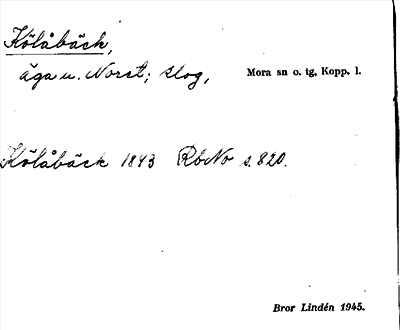 Kölåbäck,
äga u. Noret; skog,
Mora sn o. tg, Kopp. l.
Kölåbäck 1843 RbNo s. 820.
Bror Lindén 1945.